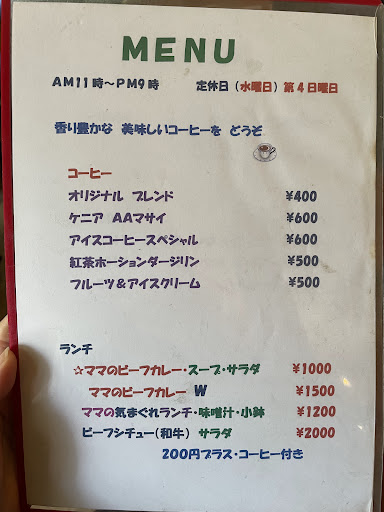 MENU
AM11時～PM9時 定休日（水曜日）第4日曜日
香り豊かな 美味しいコーヒーを どうぞ
コーヒー
オリジナル ブレンド ¥400
ケニア AAマサイ ¥600
アイスコーヒースペシャル ¥600
紅茶ホーションダージリン ¥500
フルーツ＆アイスクリーム ¥500
ランチ
☆ママのビーフカレー・スープ・サラダ ¥1000
ママのビーフカレー W ¥1500
ママの気まぐれランチ・味噌汁・小鉢 ¥1200
ビーフシチュー（和牛） サラダ ¥2000
200円プラス・コーヒー付き